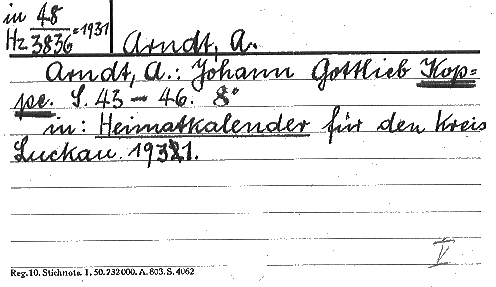 in 48
Hz 3836 = 1931
Arndt, A.
Arndt, A.: Johann Gottlieb Kop=
pe. S. 43 - 46. 8°
in: Heimatkalender für den Kreis
Luckau. 1931.
V
Reg. 10. Stichnote. 1. 50. 732000. A. 803. S. 4062